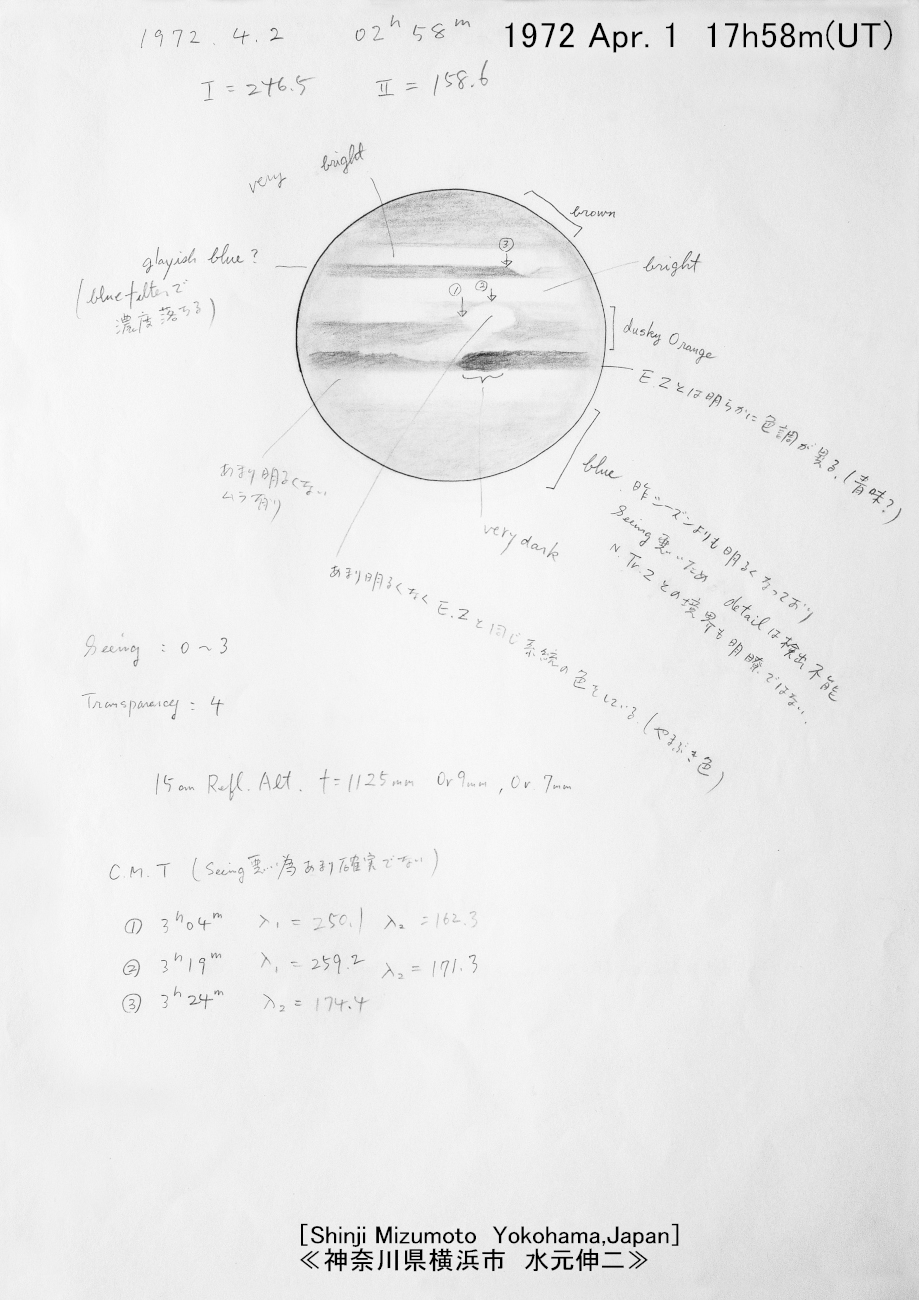 1972. 4. 2 02h 58m 1972 Apr. 1 17h58m(UT)
I = 246.5 II = 158.6
very bright
brown
③
glayish blue ?
(blue filterで
濃度落ちる)
bright
① ②
dusky Orange
E.Zとは明らかに色調が異る.(青味?)
あまり明るくない
ムラ有り
very dark
blue. 昨シーズンよりも明るくなっており
Seeing 悪いため detailは検出不能
N.Tr.Zとの境界も明瞭ではない.
あまり明るくなく E.Zと同じ系統の色をしている.(やまぶき色)
Seeing : 0~3
Transparency : 4
15cm Refl. Alt. f=1125mm Or9mm, Or 7mm
C.M.T (Seeing悪い為あまり確実でない)
① 3h04m λ1 = 250.1 λ2 = 162.3
② 3h19m λ1 = 259.2 λ2 = 171.3
③ 3h24m λ2 = 174.4
[Shinji Mizumoto Yokohama,Japan]
≪神奈川県横浜市 水元伸二≫